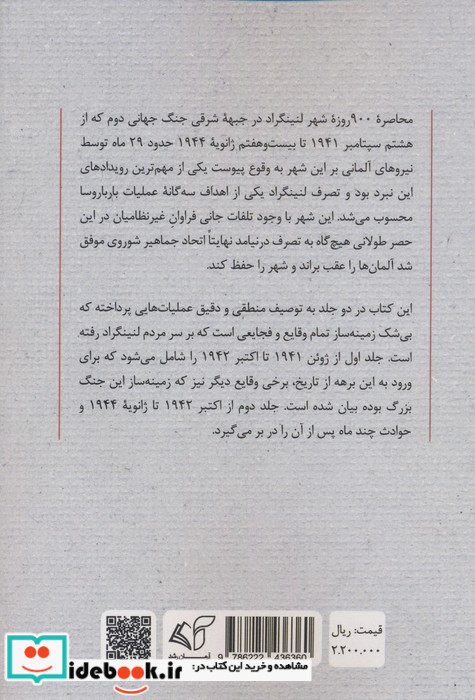 محاصرهٔ ۹۰۰روزهٔ شهر لنینگراد در جبههٔ شرقی جنگ جهانی دوم که از
هشتم سپتامبر ۱۹۴۱ تا بیست‌وهفتم ژانویهٔ ۱۹۴۴ حدود ۲۹ ماه توسط
نیروهای آلمانی بر این شهر به وقوع پیوست یکی از مهم‌ترین رویدادهای
این نبرد بود و تصرف لنینگراد یکی از اهداف سه‌گانهٔ عملیات بارباروسا
محسوب می‌شد. این شهر با وجود تلفات جانی فراوانِ غیرنظامیان در این
حصر طولانی هیچ‌گاه به تصرف درنیامد نهایتاً اتحاد جماهیر شوروی موفق
شد آلمان‌ها را عقب براند و شهر را حفظ کند.
این کتاب در دو جلد به توصیف منطقی و دقیق عملیات‌هایی پرداخته که
بی‌شک زمینه‌ساز تمام وقایع و فجایعی است که بر سر مردم لنینگراد رفته
است. جلد اول از ژوئن ۱۹۴۱ تا اکتبر ۱۹۴۲ را شامل می‌شود که برای
ورود به این برهه از تاریخ، برخی وقایع دیگر نیز که زمینه‌ساز این جنگ
بزرگ بوده بیان شده است. جلد دوم از اکتبر ۱۹۴۲ تا ژانویهٔ ۱۹۴۴ و
حوادث چند ماه پس از آن را در بر می‌گیرد.
قیمت: ریال
۲.۲۰۰.۰۰۰
9 786222 436360
مشاهده و خرید این کتاب در:
idebook.ir